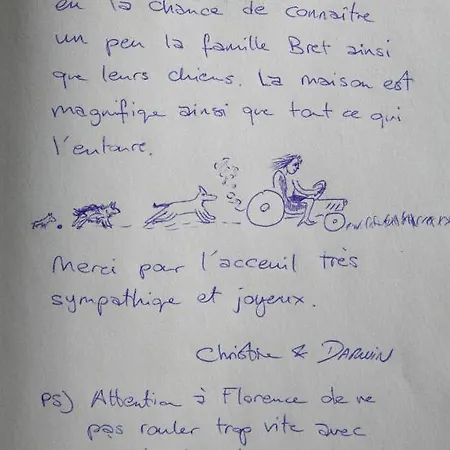 eu la chance de connaître
un peu la famille Bret ainsi
que leurs chiens. La maison est
magnifiqe ainsi que tout ce qui
l'entoure.
Merci pour l'acceuil très
sympathiqe et joyeux.
Christine & DARWIN
PS) Attention à Florence de ne
pas rouler trop vite avec